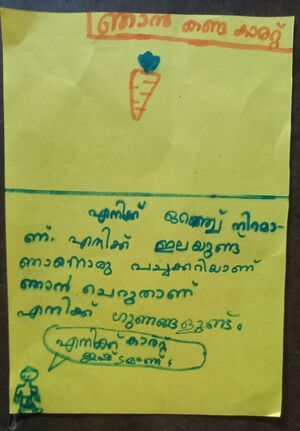 ഞാൻ കണ്ട കാരറ്റ്
എനിക്ക് ഓറഞ്ച് നിറമാ-
ണ്. എനിക്ക് ഇലയുണ്ട
ഞാനൊരു പച്ചക്കറിയാണ്
ഞാൻ ചെറുതാണ്
എനിക്ക് ഗുണങ്ങളുണ്ട്.
എനിക്ക് കാരറ്റ്
ഇഷ്ടമാണ്.